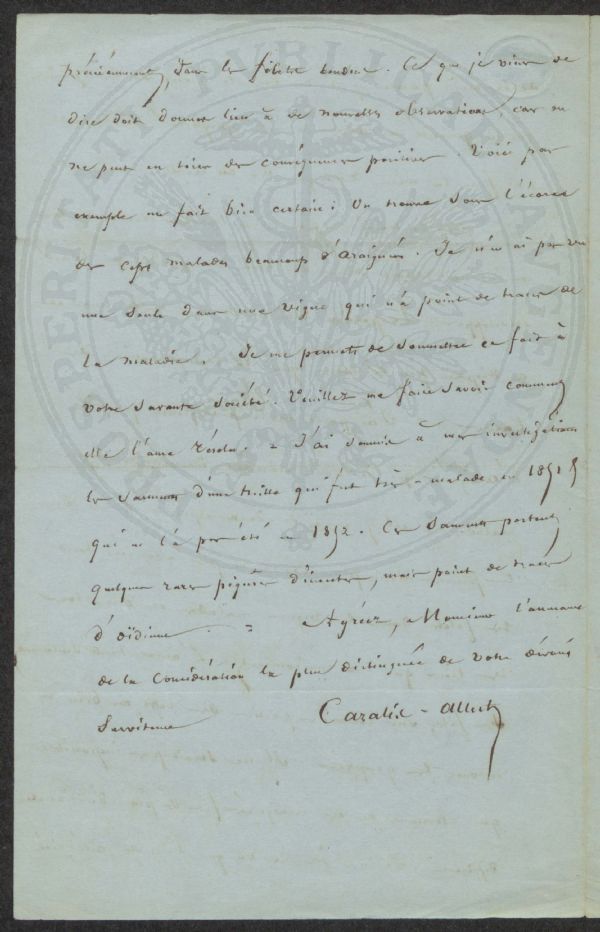 précisément, dans le . Ce que je viens de
dire doit donner lieu à de nouvelles observations, car on
ne peut en tirer de conséquences positives. Voici par
exemple un fait bien certain : On trouve sous l'écorce
des ceps malades beaucoup d'araignées. Je n'en ai pas vu
une seule dans une vigne qui n'a point de traces de
la maladie. Je me permets de soumettre ce fait à
votre savante société. Veuillez me faire savoir comment
elle l'aura résolu. = J'ai soumis à mes investigations
les sarments d'une treille qui fut très-malade en 1851 &
qui ne l'a pas été en 1852. Ces sarments portent
quelques rares piqûres d'insectes, mais point de traces
d'oïdium =
Agréez, Monsieur l'assurance
de la considération la plus distinguée de votre dévoué
serviteur
Cazalis-Allut
PROSPERITATI PUBLICAE AUGENDAE